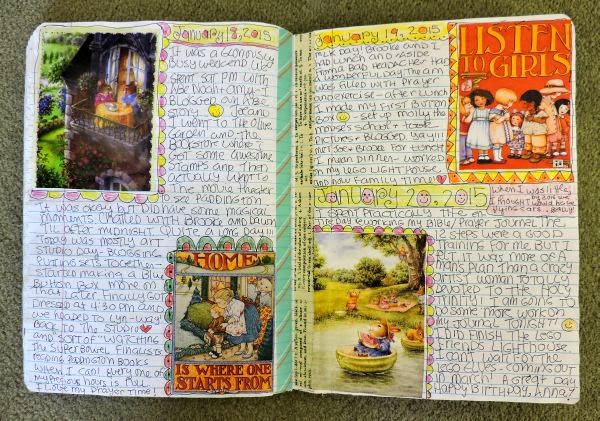 January 18, 2015
It was a Gloriously
Busy weekend! We
spent Sat PM with
Abe Noah + Amy - I
Blogged our ABC
story. Jacqui
& I went to the Olive
Garden and the
Bookstore where I
Got some awesome
stamps and then
actually went to
The movie theater
to see Paddington
it was okay but did have some magical
moments. Chatted with Brooke and Dawn
til after midnight. Quite a long day!!!
Today was mostly art
studio day - Blogging
Putting sets together
started making a Blue
Button Box more on
that later. Finally got
Dressed at 4:30 PM and
we headed to Lyn-way
Back to the studio
and sort of watching
the Super Bowl Finalists
reading Paddington Books
when I can. Every one of
my precious hours is full
I love my prayer time!
HOME
IS WHERE ONE
STARTS FROM
January 19, 2015
MLK Day! Brooke and I
had lunch and
a wonderful day. The am
was filled with prayer
and exercise - after lunch
I made my first Button
Box - set up Molly the
mouse's school. Took
pictures + Blogged
met Brooke for lunch
I mean dinner - worked
on my Lego Light House
and now family time
LISTEN
TO GIRLS
January 20, 2015
when I was little
I thought
would have
flying cars
I spent practically the en-
tire day working my Bible/Prayer Journal. The
12 steps were a good
training for me but I
felt it was more of a
man's plan than a crazy
old woman totally
devoted to the Holy
Trinity! I am going to
do some more work on
my Journal tonight!
I did finish the Lego
Friends Lighthouse
I can't wait for the
Lego Elves - coming out
in March! A great day
Happy Birthday, Anna!